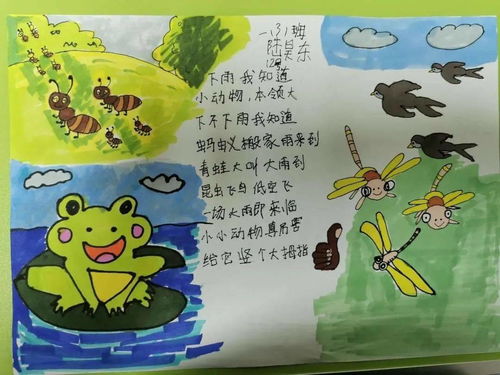 一（3）班
陆昊东
12号
下雨我知道
小动物，本领大
下不下雨我知道
蚂蚁搬家雨来到
青蛙大叫大雨到
昆虫飞鸟低空飞
一场大雨即来临
小小动物真厉害
给它竖个大拇指